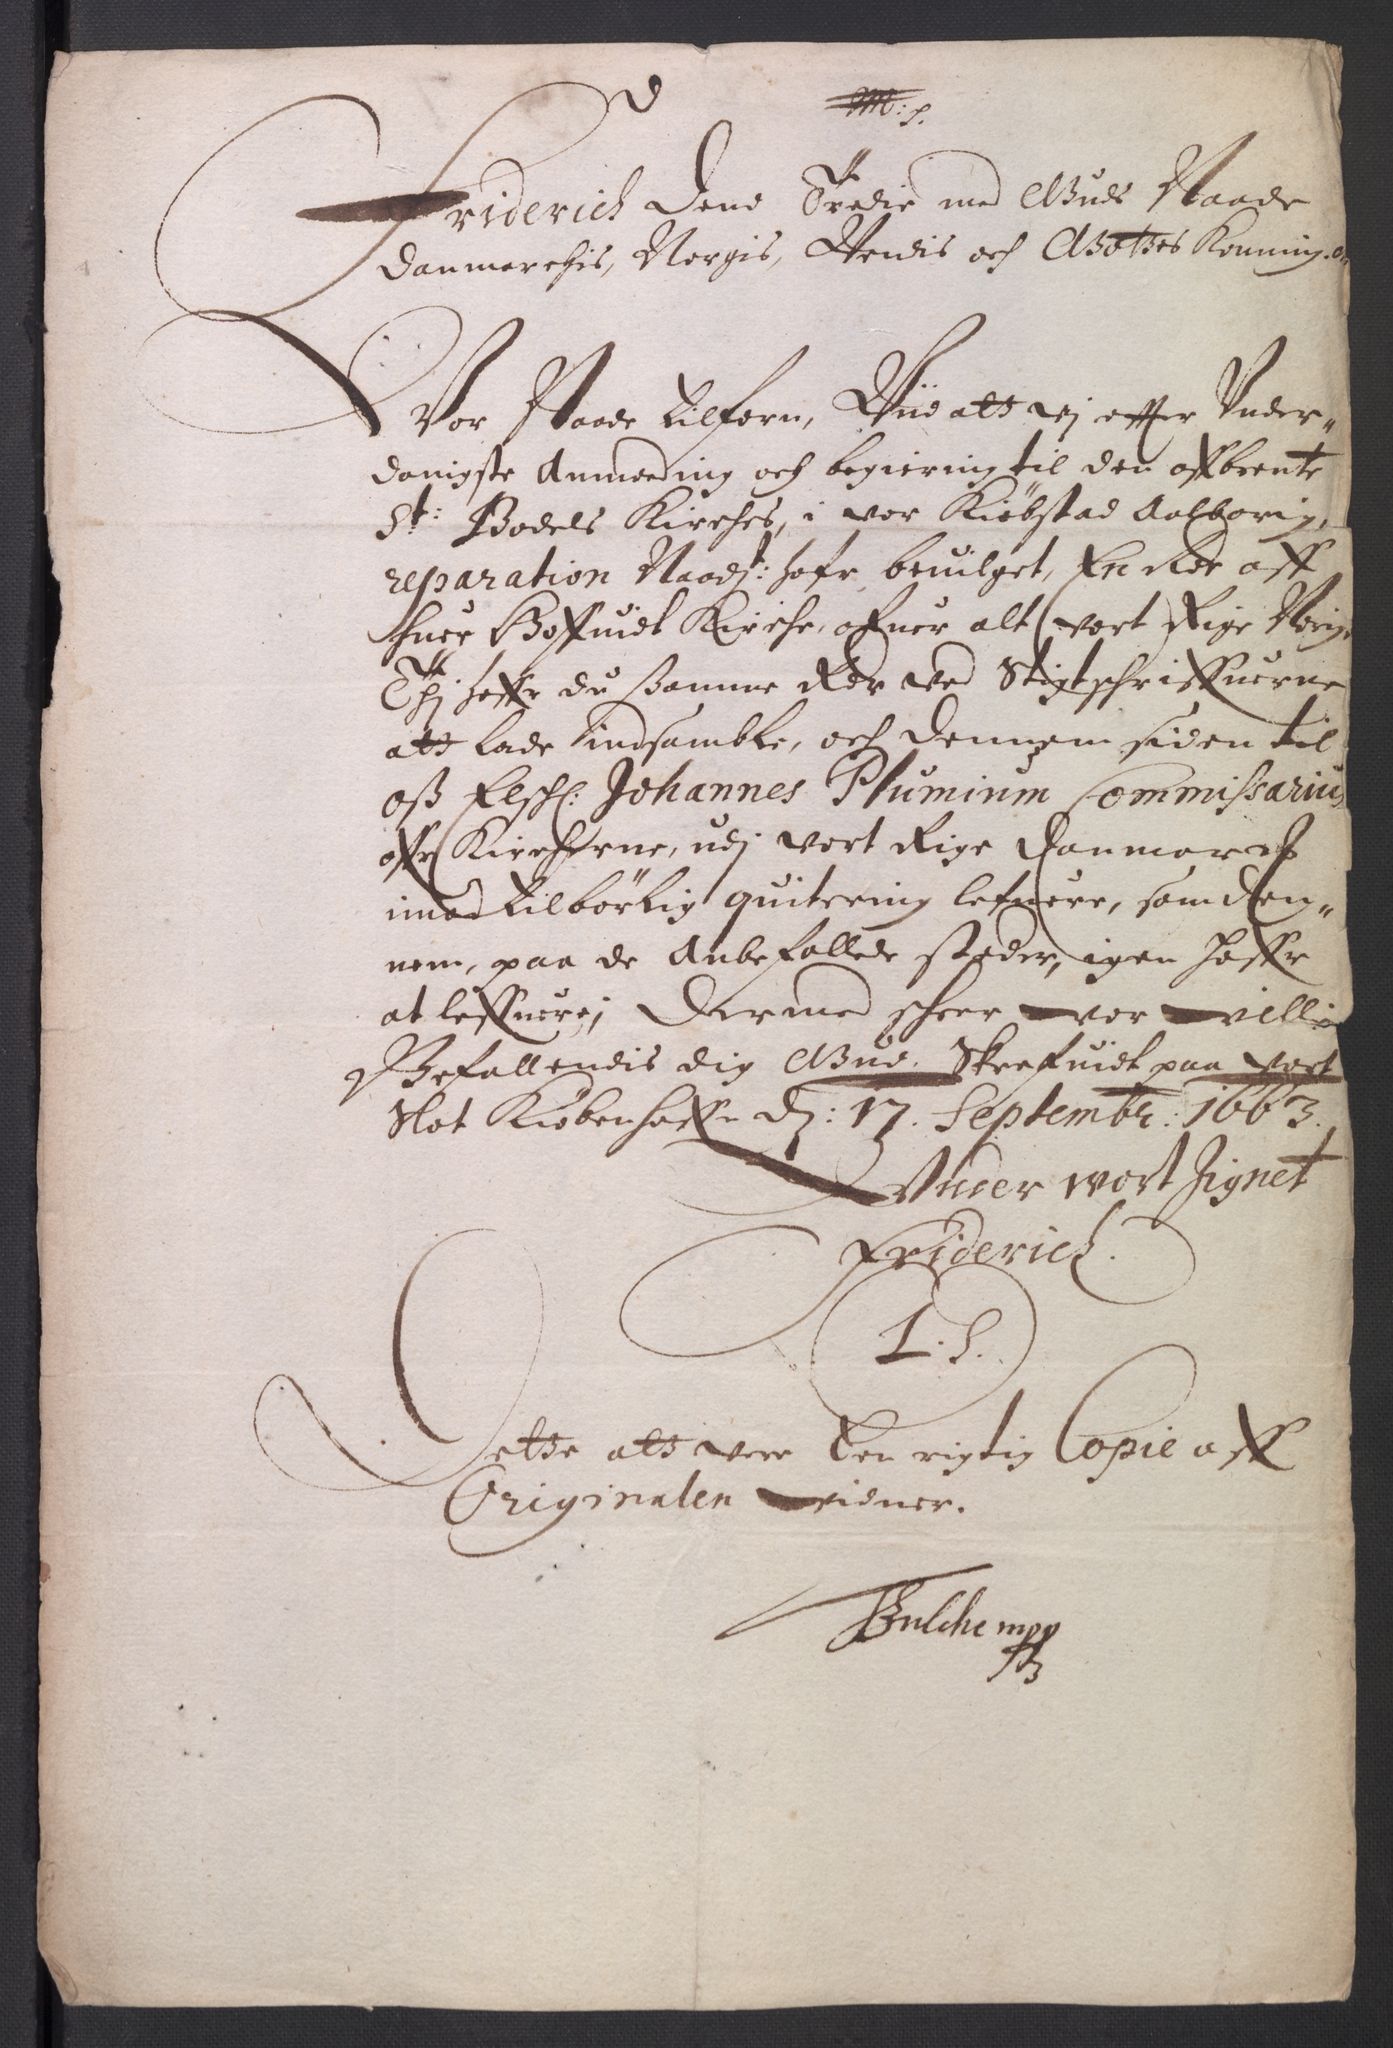 M: p.
Friderich dend Tredie med Guds Naade
Danmarchis, Norgis, Vendis och Gottes Konning
Vor Naade tilforn, Viid att vj effter Vnder-
danigste Anmoding och begiering til den affbrente
St: Bodels Kirches, i vor Kiöbstad Aalborig,
reparation Naadst: hafr beuilget, En Rdr aff
huer Hoffuidt Kirche, ofuer alt vort Rige Norig
Thj haffr du samme Rdr ved Stigtschriffuerne
att lade indsamble, och dennem siden til
oß Elschl: Johannes Pluminum Commissarius
offr Kircherne, udj vort Rige Danmarck
imod tilbörlig quitering lefuere, som den-
nem, paa de Anbefallede steder, igen haffr
at leffuere; Dermed scheer vor villie
Befallendis dig Gud. Skrefuidt paa vort
Slot Kiøbenhaffn d: 17. Septembr: 1663.
Vnder wort Signet
Friderich.
L. S.
Dette att vere Een rigtig Copie aff
Originalen vidner.